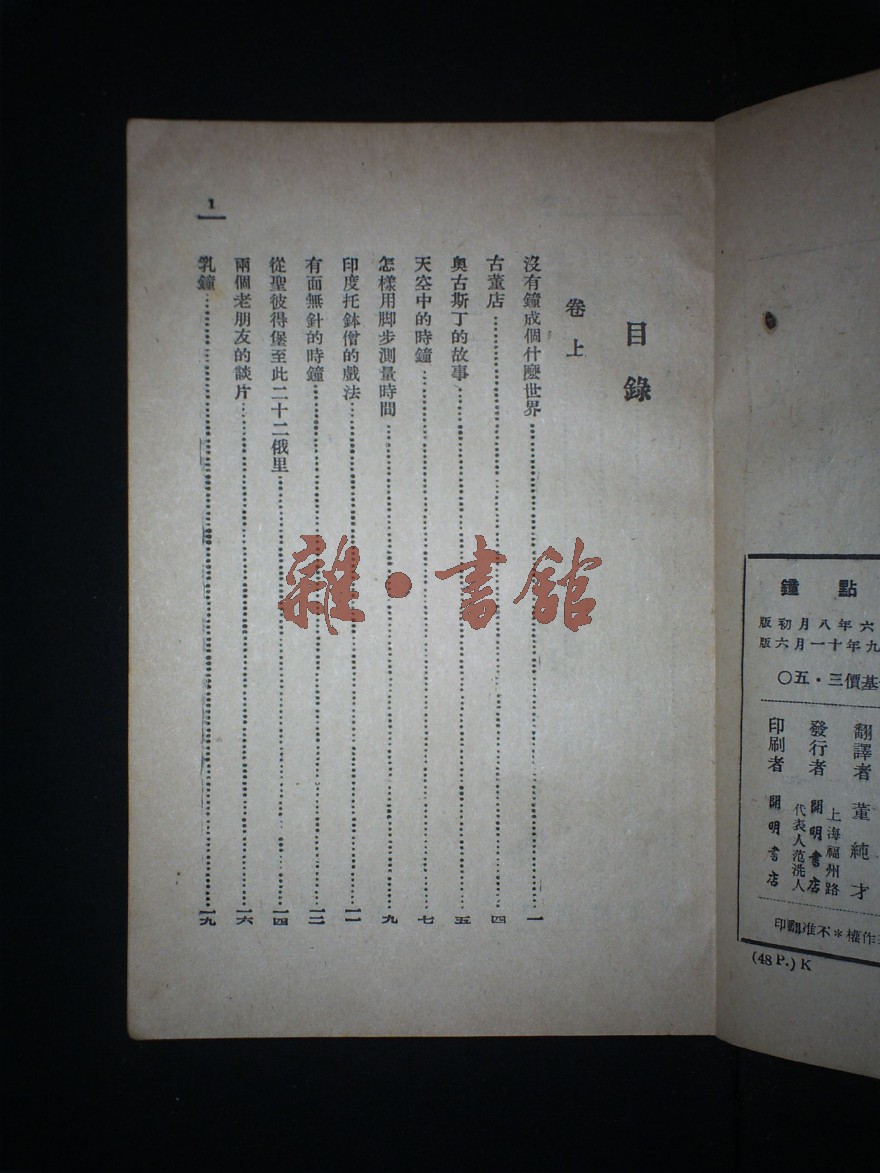 目錄
卷上
沒有鐘成個什麼世界⋯⋯一
古董店⋯⋯四
奧古斯丁的故事⋯⋯五
天空中的時鐘⋯⋯七
怎樣用脚步測量時間⋯⋯九
印度托鉢僧的戲法⋯⋯一一
有面無針的時鐘⋯⋯一二
從聖彼得堡至此二十二俄里⋯⋯一四
兩個老朋友的談片⋯⋯一六
乳鐘⋯⋯一九
1
雜·書館
點鐘
六年八月初版
九年十一月六版
基價三·五〇
翻譯者 董純才
上海福州路
發行者 開明書店
代表人范洗人
印刷者 開明書店
作權*不准翻印
(48 P.) K